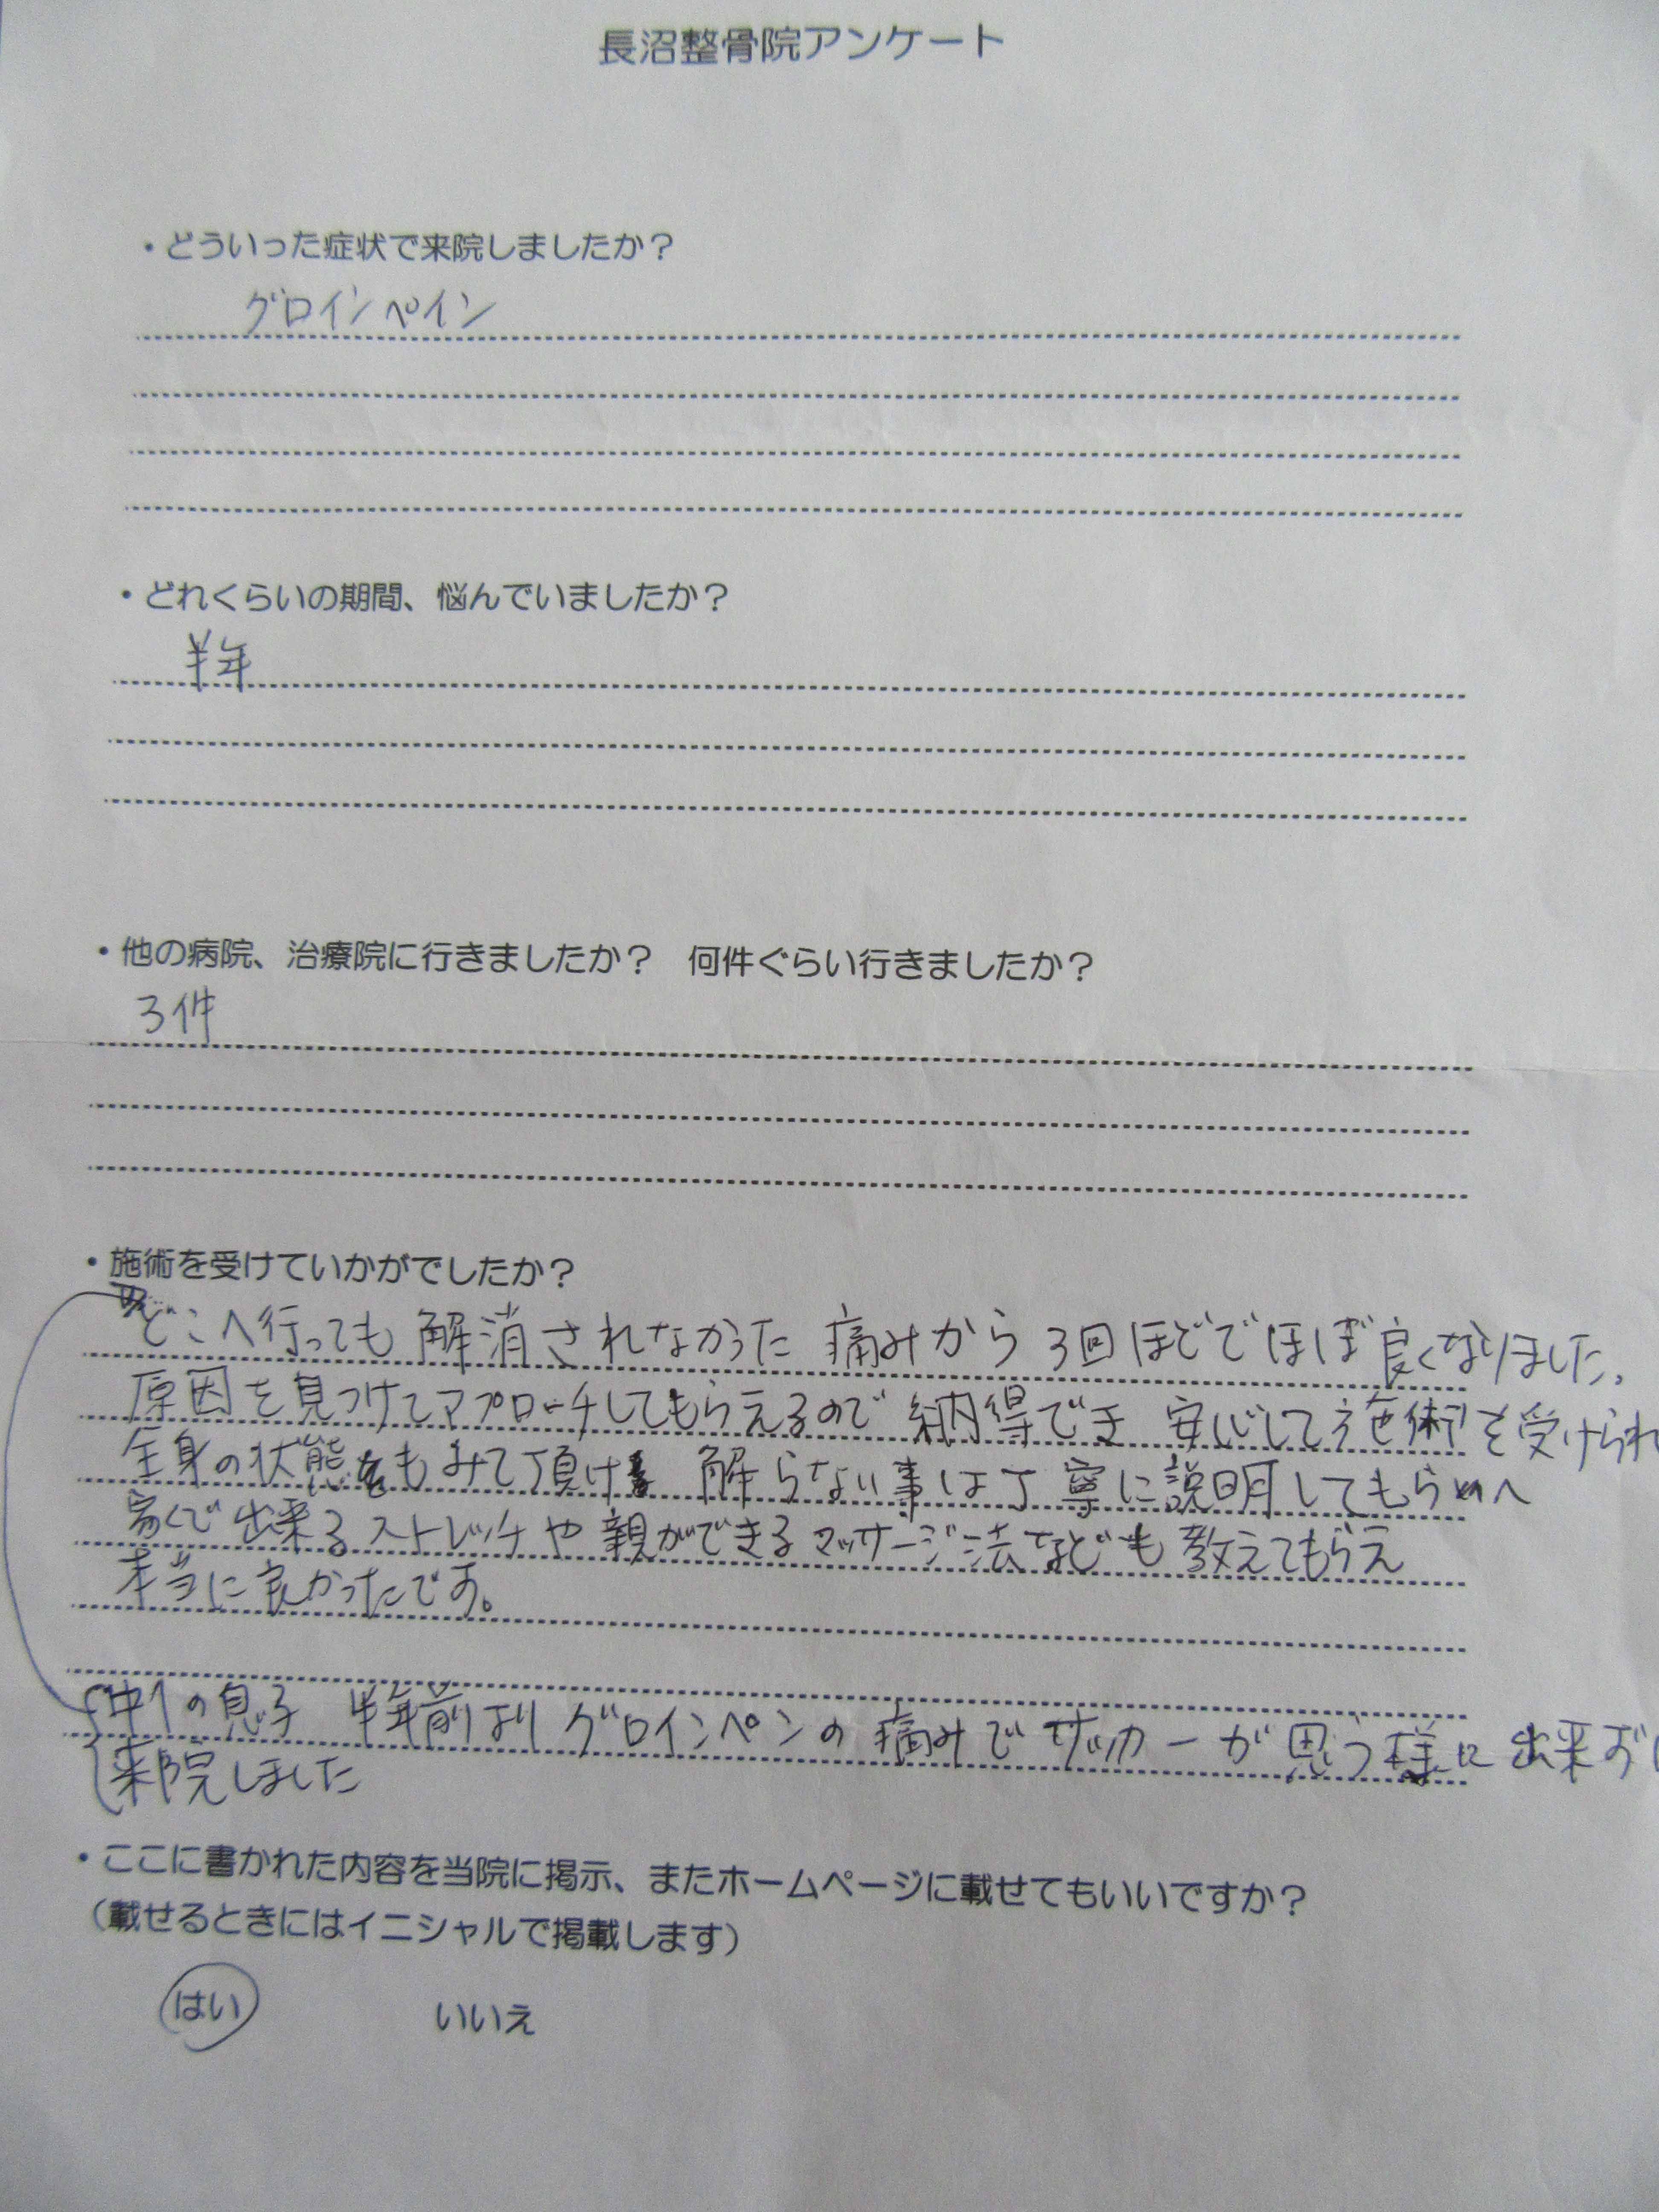 長沼整骨院アンケート
・どういった症状で来院しましたか？
グロインペイン
・どれくらいの期間、悩んでいましたか？
半年
・他の病院、治療院に行きましたか？　何件ぐらい行きましたか？
3件
・施術を受けていかがでしたか？
どこへ行っても解消されなかった痛みから3回ほどでほぼ良くなりました。
原因を見つけてアプローチしてもらえるので納得でき安心して施術を受けられ
全身の状態をもみて頂け解らない事は丁寧に説明してもらへ
家で出来るストレッチや親ができるマッサージ法なども教えてもらえ
本当に良かったです。
中1の息子　半年前よりグロインペンの痛みでサッカーが思う様に出来ず
来院しました
・ここに書かれた内容を当院に掲示、またホームページに載せてもいいですか？
（載せるときにはイニシャルで掲載します）
はい　いいえ